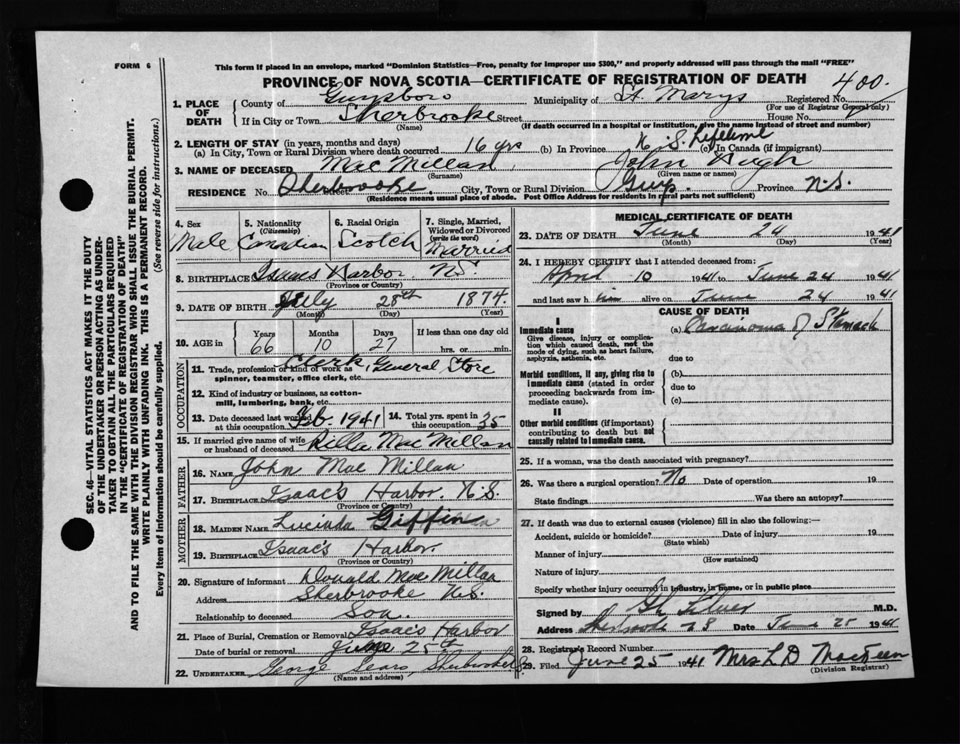 FORM 6
This form if placed in an envelope, marked "Dominion Statistics—Free, penalty for improper use $300," and properly addressed will pass through the mail "FREE"
PROVINCE OF NOVA SCOTIA—CERTIFICATE OF REGISTRATION OF DEATH
400
1. PLACE OF DEATH
County of Guysboro Municipality of St. Marys Registered No.
(For use of Registrar General only)
If in City or Town Sherbrooke Street House No.
(Name) (If death occurred in a hospital or institution, give the name instead of street and number)
2. LENGTH OF STAY (in years, months and days)
(a) In City, Town or Rural Division where death occurred 16 yrs (b) In Province N.S. Lifetime (c) In Canada (if immigrant)
3. NAME OF DECEASED Mac Millan John Hugh
(Surname) (Given name or names)
RESIDENCE No. Sherbrooke. Street City, Town or Rural Division Guy. Province N.S.
(Residence means usual place of abode. Post Office Address for residents in rural parts not sufficient)
4. Sex Male
5. Nationality (Citizenship) Canadian
6. Racial Origin Scotch
7. Single, Married, Widowed or Divorced (write the word) Married
8. BIRTHPLACE Isaacs Harbor N.S.
(Province or Country)
9. DATE OF BIRTH July 28th 1874.
(Month) (Day) (Year)
10. AGE in Years 66 Months 10 Days 27 If less than one day old
hrs. or min.
OCCUPATION
11. Trade, profession or kind of work as spinner, teamster, office clerk, etc. Clerk, General Store
12. Kind of industry or business, as cotton-mill, lumbering, bank, etc.
13. Date deceased last worked at this occupation Feb. 1941 14. Total yrs. spent in 35
15. If married give name of wife or husband of deceased Rilla Mac Millan
FATHER
16. NAME John Mac Millan
17. BIRTHPLACE Isaac's Harbor. N.S.
(Province or Country)
MOTHER
18. MAIDEN NAME Lucinda Giffin
19. BIRTHPLACE Isaac's Harbor.
(Province or Country)
20. Signature of informant Donald Mac Millan
Address Sherbrooke N.S.
Relationship to deceased Son.
21. Place of Burial, Cremation or Removal Isaac's Harbor
Date of burial or removal June 25th
22. UNDERTAKER George Sears, Sherbrooke N.S.
(Name and address)
MEDICAL CERTIFICATE OF DEATH
23. DATE OF DEATH June 24 1941
(Month) (Day) (Year)
24. I HEREBY CERTIFY that I attended deceased from:
April 10 1941 to June 24 1941
and last saw h im alive on June 24 1941
CAUSE OF DEATH
I
Immediate cause (a) Carcinoma of Stomach
Give disease, injury or complication which caused death, not the mode of dying, such as heart failure, asphyxia, asthenia, etc.
due to
Morbid conditions, if any, giving rise to immediate cause (stated in order proceeding backwards from immediate cause).
(b)
due to
(c)
II
Other morbid conditions (if important) contributing to death but not causally related to immediate cause.
25. If a woman, was the death associated with pregnancy?
26. Was there a surgical operation? No Date of operation 19
State findings Was there an autopsy?
27. If death was due to external causes (violence) fill in also the following:—
Accident, suicide or homicide? Date of injury 19
(State which)
Manner of injury
(How sustained)
Nature of injury
Specify whether injury occurred in industry, in home, or in public place
Signed by M.D.
Address Date June 25 1941
28. Registrar's Record Number
29. Filed June 25 1941 Mrs L D
(Division Registrar)
SEC. 46—VITAL STATISTICS ACT MAKES IT THE DUTY
OF THE UNDERTAKER OR PERSON ACTING AS UNDER-
TAKER TO OBTAIN ALL THE PARTICULARS REQUIRED
IN THE "CERTIFICATE OF REGISTRATION OF DEATH"
AND TO FILE THE SAME WITH THE DIVISION REGISTRAR WHO SHALL ISSUE THE BURIAL PERMIT.
WRITE PLAINLY WITH UNFADING INK. THIS IS A PERMANENT RECORD.
Every item of information should be carefully supplied. (See reverse side for instructions.)